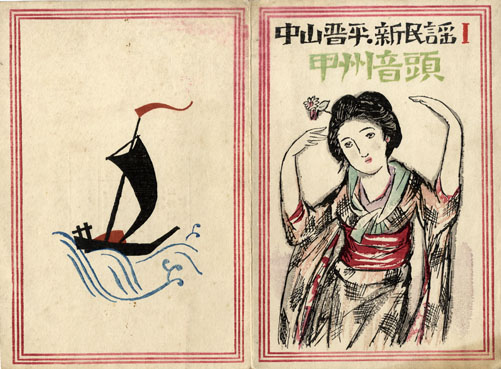 中山晋平.新民謡I
甲州音頭